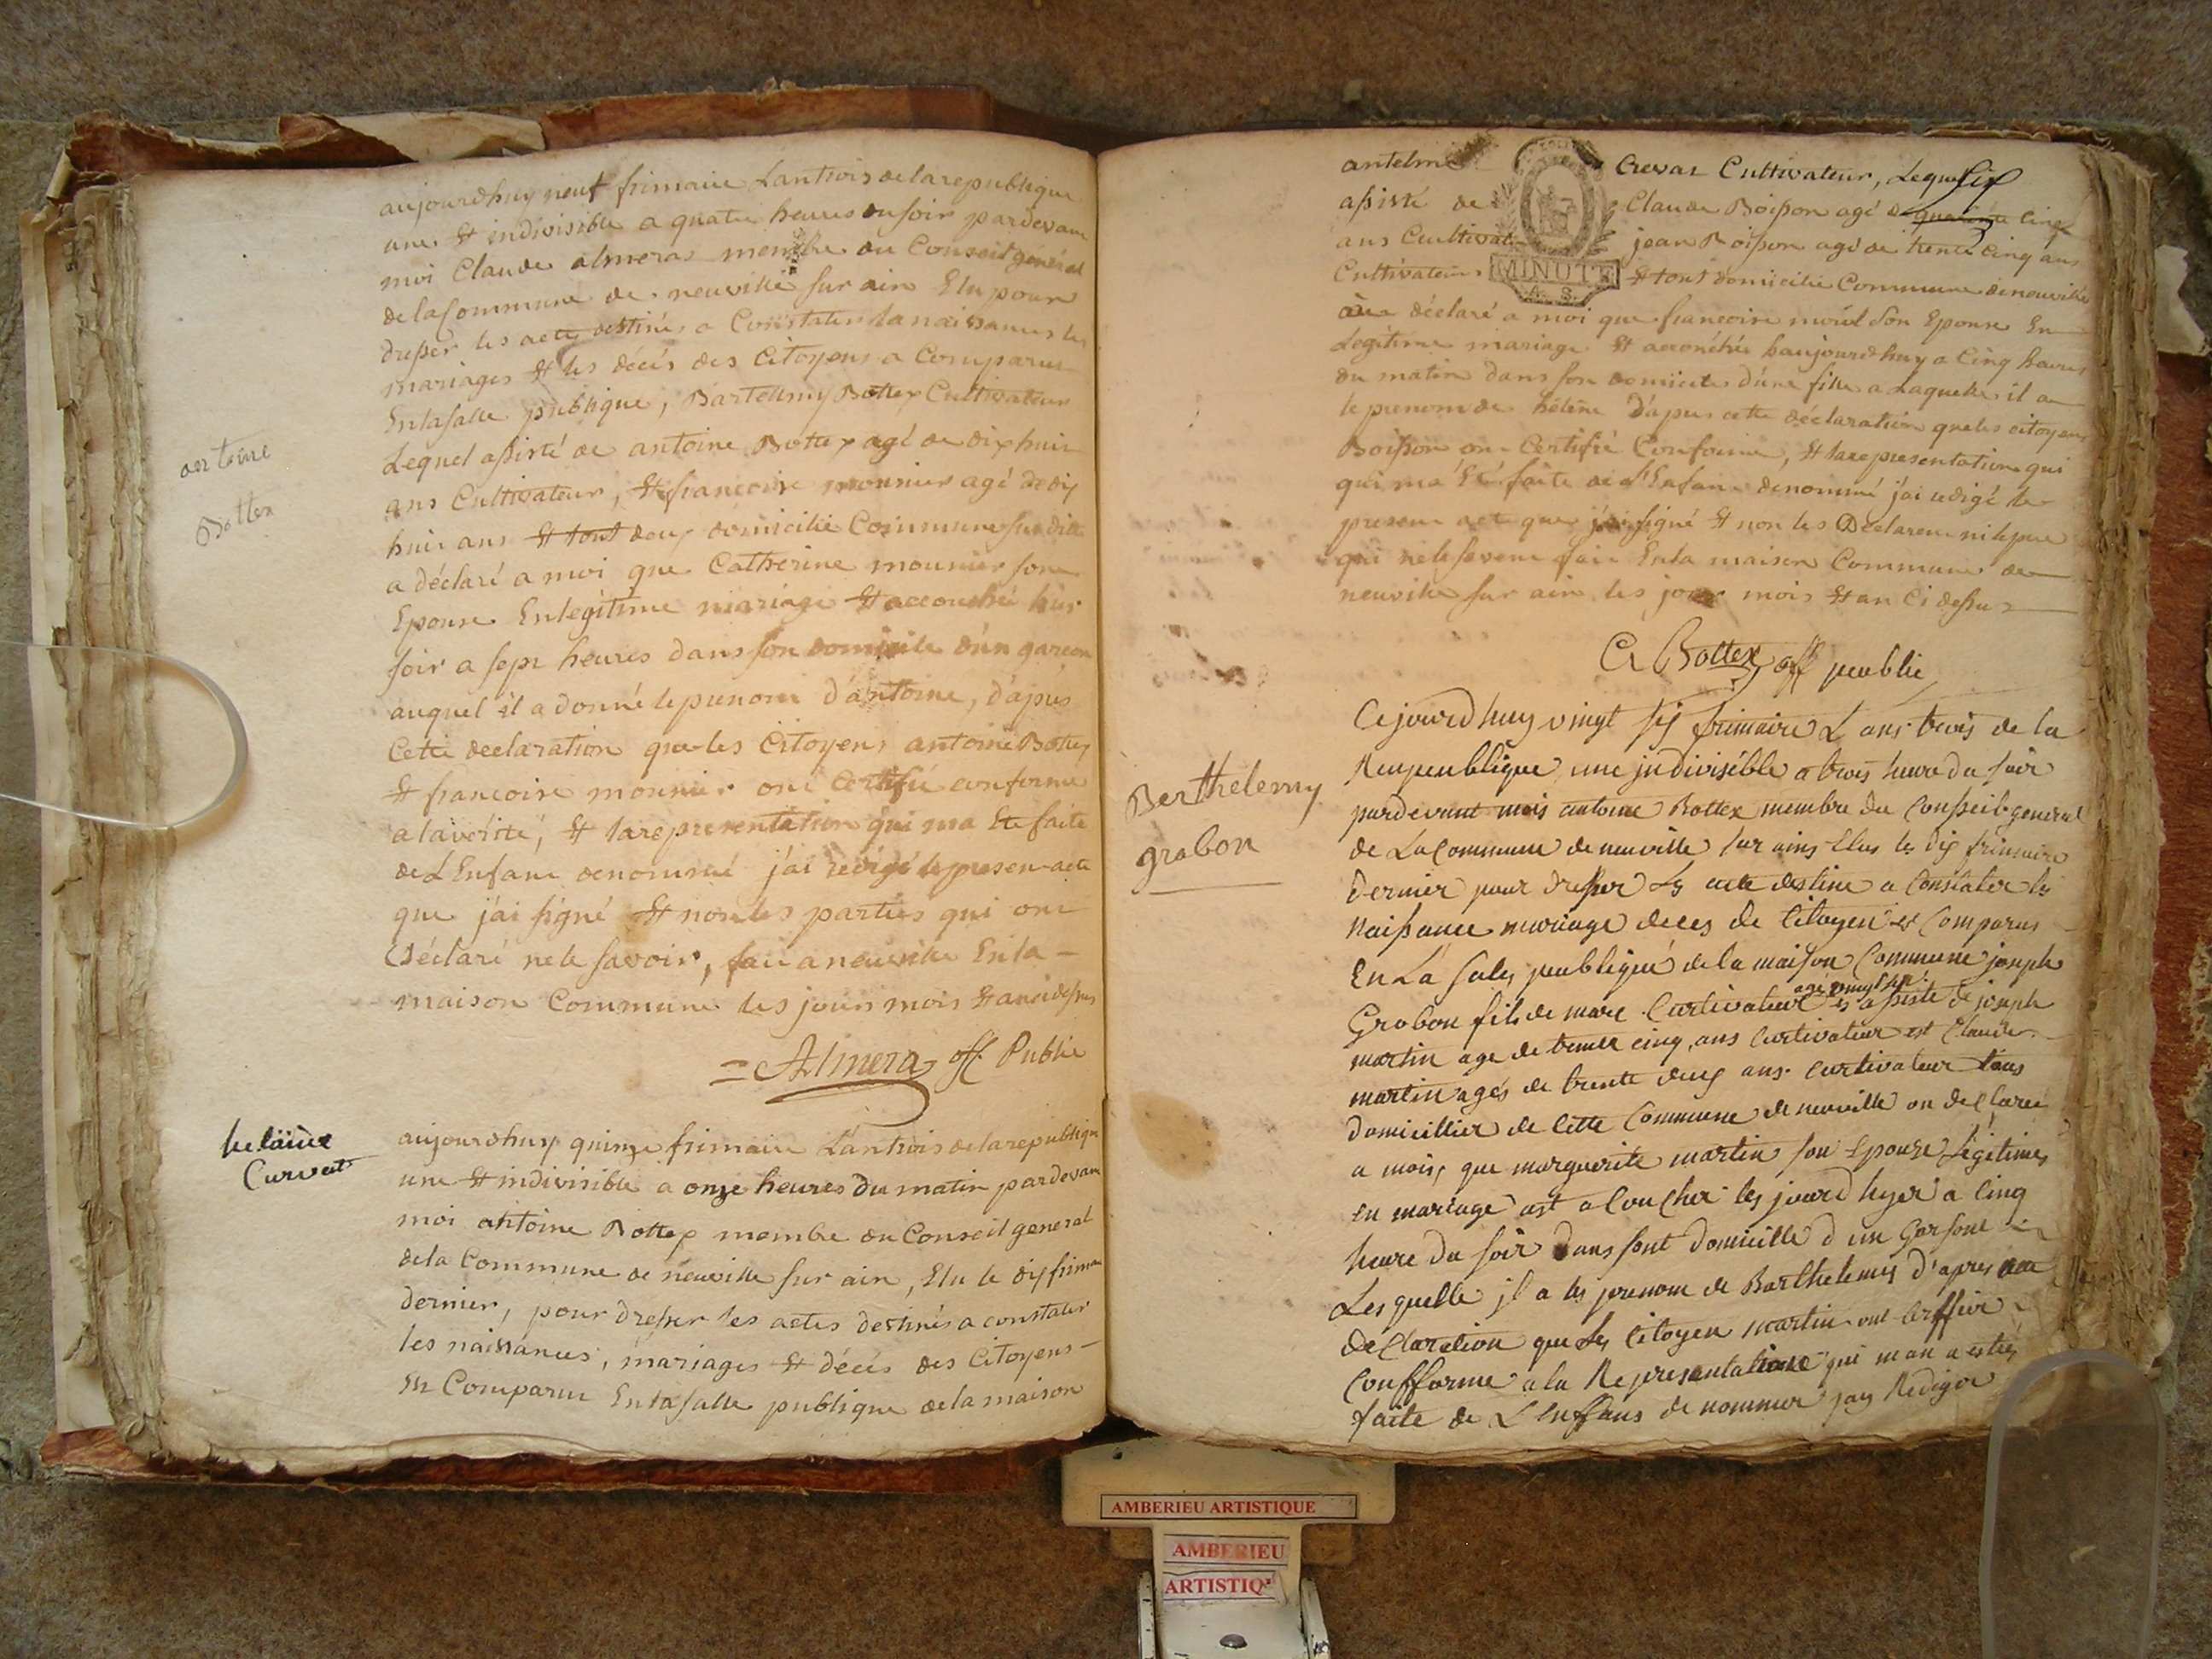 aujourdhuy neuf frimaire Lantrois de la republique
une Et indivisible a quatre heures du soir pardevant
moi Claude almeras membre du Conseil général
de la Commune de neuville sur ain Elu pour
dresser les acte destinés a Constater la naissances les
mariages Et les décés des Citoyens a Comparus
En la salle publique, Bartellmy Bottex Cultivateur
Lequel assisté de antoine Bottex agé de dix huit
ans Cultivateur, Et francoise mounier agé de dix
huit ans Et tout deux domicilié Commune susditte
a déclaré a moi que Catherine mounier son
Epouse En legitime mariage Et accouché hier
soir a sept heures dans son domicile d'un garcon
auquel il a donné le prenom d'antoine, d'apres
Cette declaration que les Citoyens antoine Bottex
Et francoise mounier ont certifié conforme
a la verité, Et la representation qui ma Ete faite
de L'Enfant denommé j'ai redigé le present acte
que j'ai signé Et non les parties qui ont
Déclaré ne le savoir, fait a neuville En la
maison Commune les jours mois Et an ci dessus
Almera off Public
antoine
Bottex
helaine
Curvat
aujourdhuy quinze frimaire Lantrois de la republique
une Et indivisible a onze heures du matin pardevant
moi antoine Bottex membre du Conseil general
de la Commune de neuville sur ain, Elu le dix frimaire
dernier, pour dresser les actes destinés a constater
les naissances, mariages Et décés des Citoyens
Est Comparu En la salle publique de la maison
antelme Crevat Cultivateur, Lequel
assisté de Claude Boisson agé de quarante cinq
ans Cultivat jean Boisson agé de trente cinq ans
MINUTE
Cultivateurs Et tout domicilié Commune de neuville
a déclaré a moi que francoise son Epouse En
Légitime mariage Et accouchée haujourdhuy a Cinq heures
du matin dans son domicile d'une fille a Laquelle il a
le prenom de heléne d'apres cette déclaration que les citoyens
Boisson ont Certifié Conforme, Et la representation qui
qui ma Eté faite de l'Enfant denommé j'ai redigé le
present act que j'ai signé Et non les Déclarent ni le pere
qui ne le savent fait En la maison Commune de
neuville sur ain les jour mois Et an Ci dessus
Bottex off peublic
Berthelemy
grabon
Cejourdhuy vingt six frimaire L ans trois de la
Reupeublique une jndivisible a trois heure du soir
pardevant mois antoine Bottex membre du Consseil general
de La Commune de neuville sur ains Elus le dix frimaire
dernier pour dresser Ls acte destine a Constater ls
naissance mariage deces de Citoyen et Comparus
En La Sales peublique de la maison Commune joseph
agé vingt sept
Grabon fils de marc Curtivateur es assiste de joseph
martin age de trente cinq ans Curtivateur est Claude
martin agés de trente deux ans Curtivateur tous
domicillier de Cette Commune de neuville on declaree
a mois, que marguerite martin son Epouse Légitimes
en mariage ast a Coucher les jourd hyer a Cinq
heure du soir dans sont domicille d un Garsont
Les quelle jl a ls prenom de Barthelemy d'apres
déClaration que Ls Citoyen martin ont Certfier
Confforme a la Representation qui man a estes
faite de L'Enffans de nommer jay Rediger
AMBERIEU ARTISTIQUE
AMBERIEU
ARTISTIQ